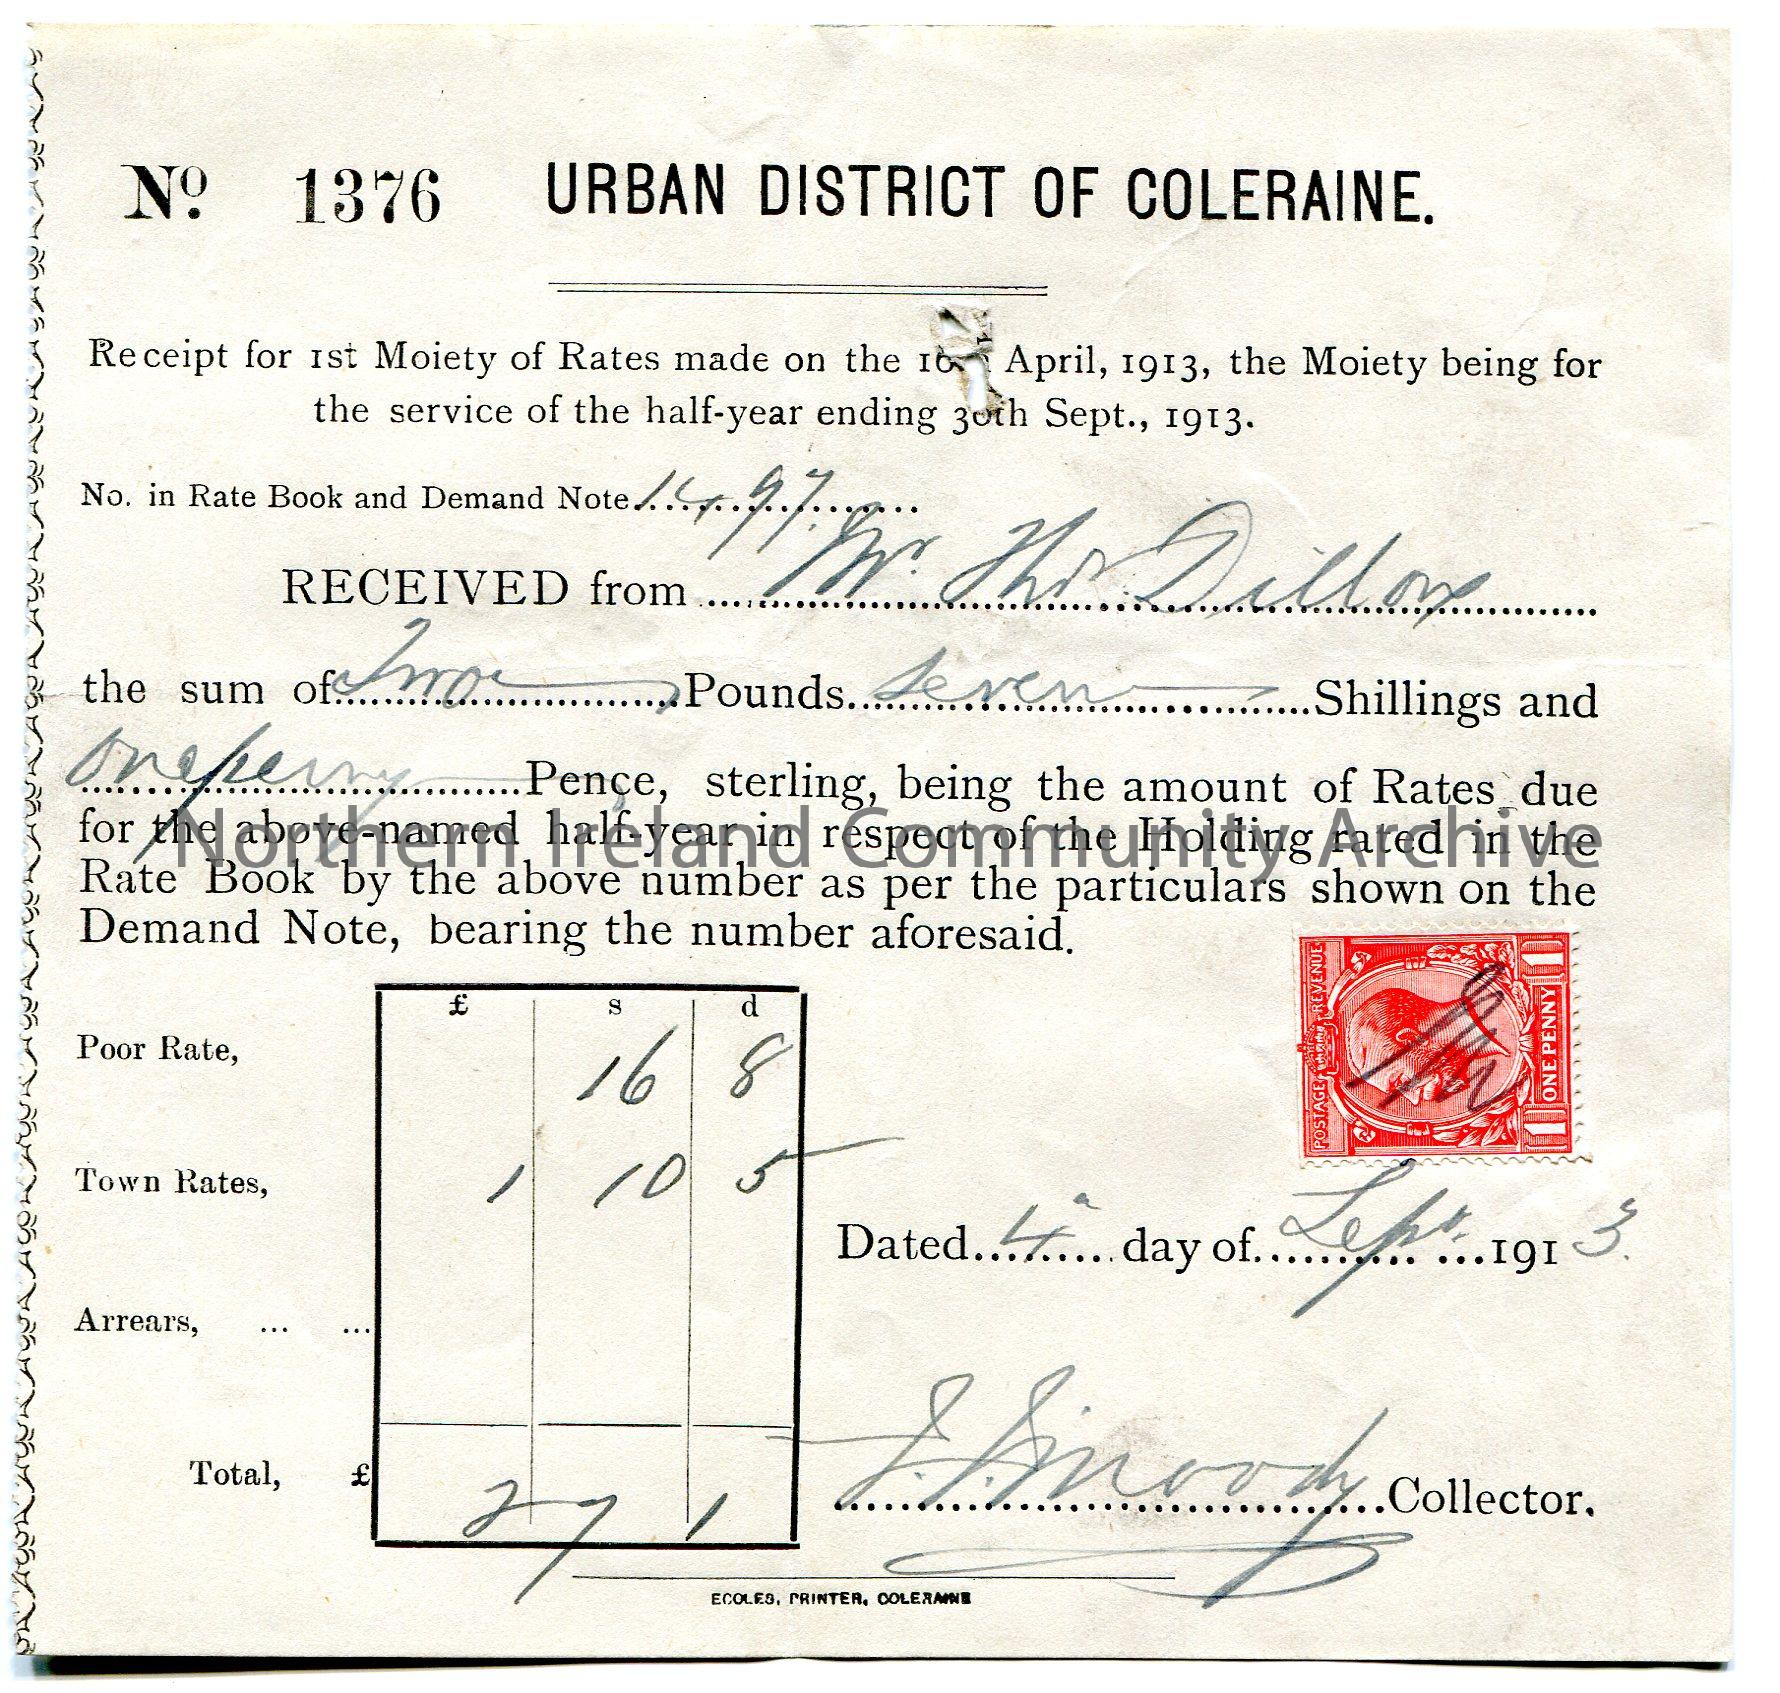 No. 1376 URBAN DISTRICT OF COLERAINE.
Receipt for 1st Moiety of Rates made on the April, 1913, the Moiety being for
the service of the half-year ending 30th Sept., 1913.
No. in Rate Book and Demand Note 1497.
RECEIVED from Mr. Thos Dillon
the sum of Two Pounds seven Shillings and
onepenny Pence, sterling, being the amount of Rates due
for the above-named half-year in respect of the Holding rated in the
Northern Ireland Community Archive
Rate Book by the above number as per the particulars shown on the
Demand Note, bearing the number aforesaid.
POSTAGE REVENUE
1 ONE PENNY 1
£ s d
Poor Rate, 16 8
Town Rates, 1 10 5
Dated 4 day of Sept. 1913.
Arrears, ... ...
Total, £ 2 7 1
Moody Collector.
ECCLES, PRINTER, COLERAINE